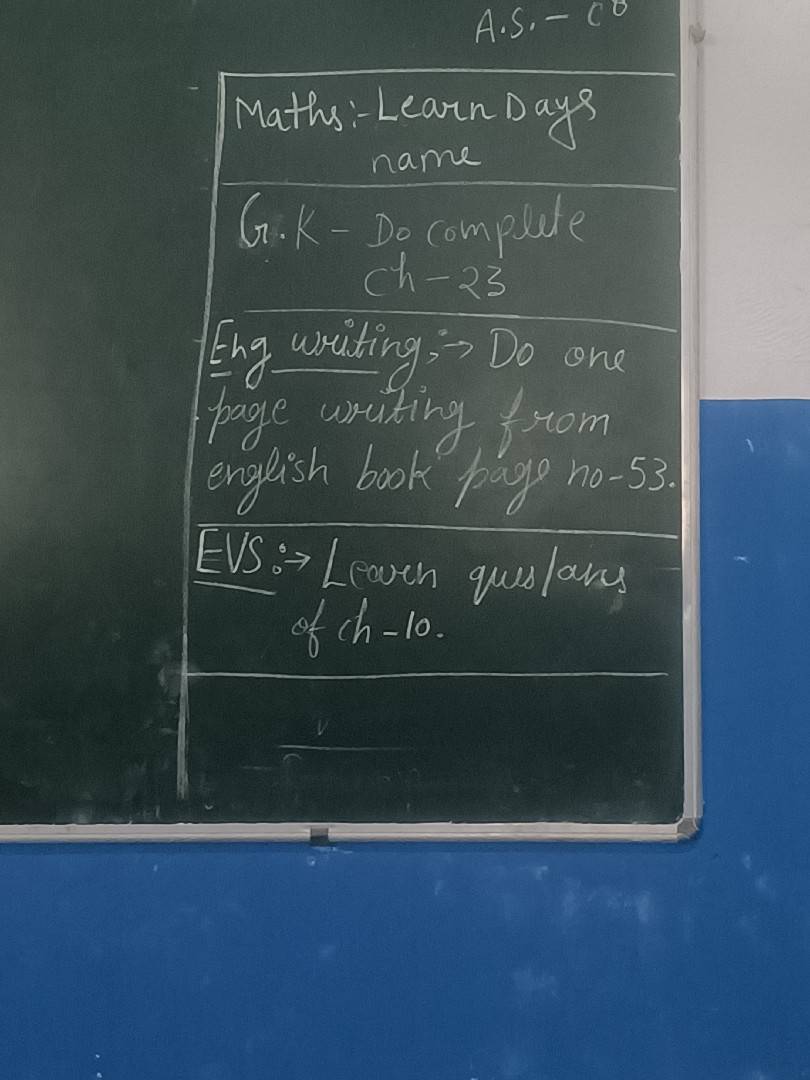 A.S. - C8
Maths:- Learn Days
name
G.K - Do complete
Ch - 23
Eng writing:→ Do one
page writing from
english book page no-53.
EVS:→ Learn ques/ans
of ch-10.